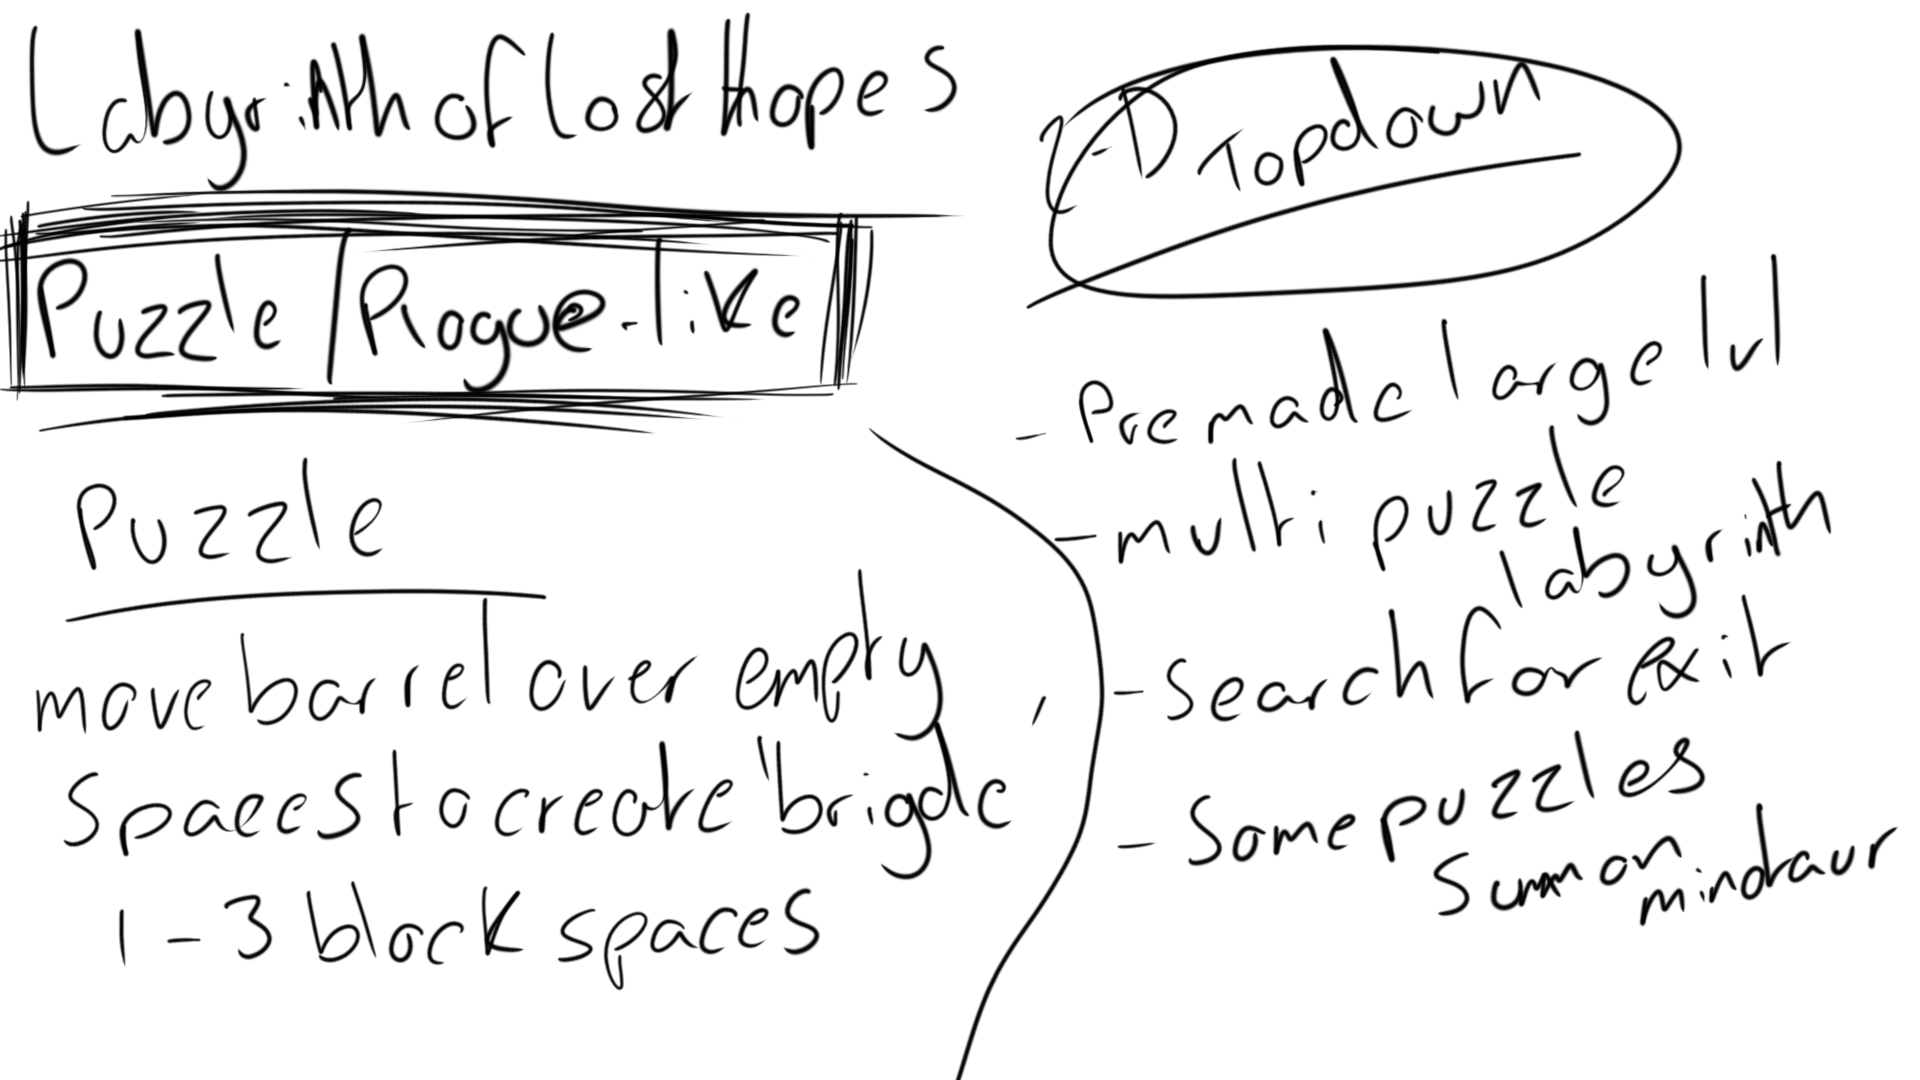 Labyrinth of lost hopes
Puzzle / Rogue-like
Puzzle
move barrel over empty
spaces to create "brigde
1-3 block spaces
2-D Topdown
- Premade large lvl
- multi puzzle
labyrinth
- Search for exit
- Some puzzles
summon
minotaur